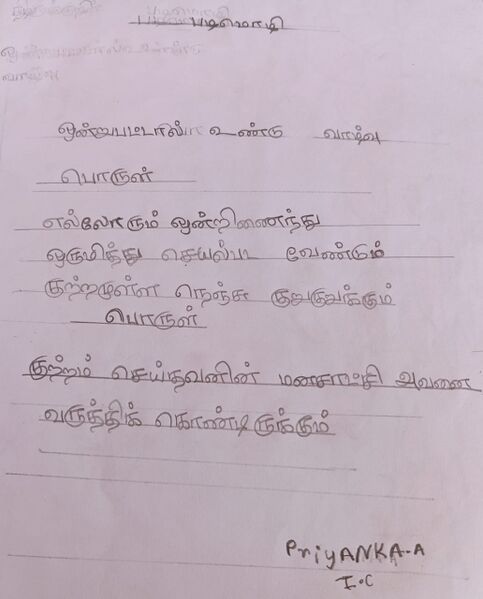 படிமொழி
ஒன்றுபட்டால் உண்டு வாழ்வு
பொருள்
எல்லோரும் ஒன்றிணைந்து
ஒருமித்து செயல்பட வேண்டும்
குற்றமுள்ள நெஞ்சு குறுகுறுக்கும்
பொருள்
குற்றம் செய்தவனின் மனசாட்சி அவனை
வருத்திக் கொண்டிருக்கும்
PriyANKA-A
I-C